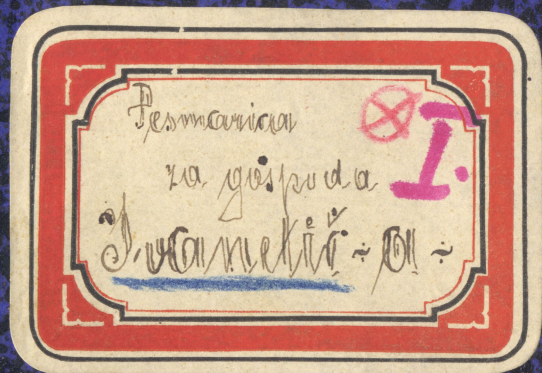 Pesmarica
I.
za gospoda
Ivanetič-a-